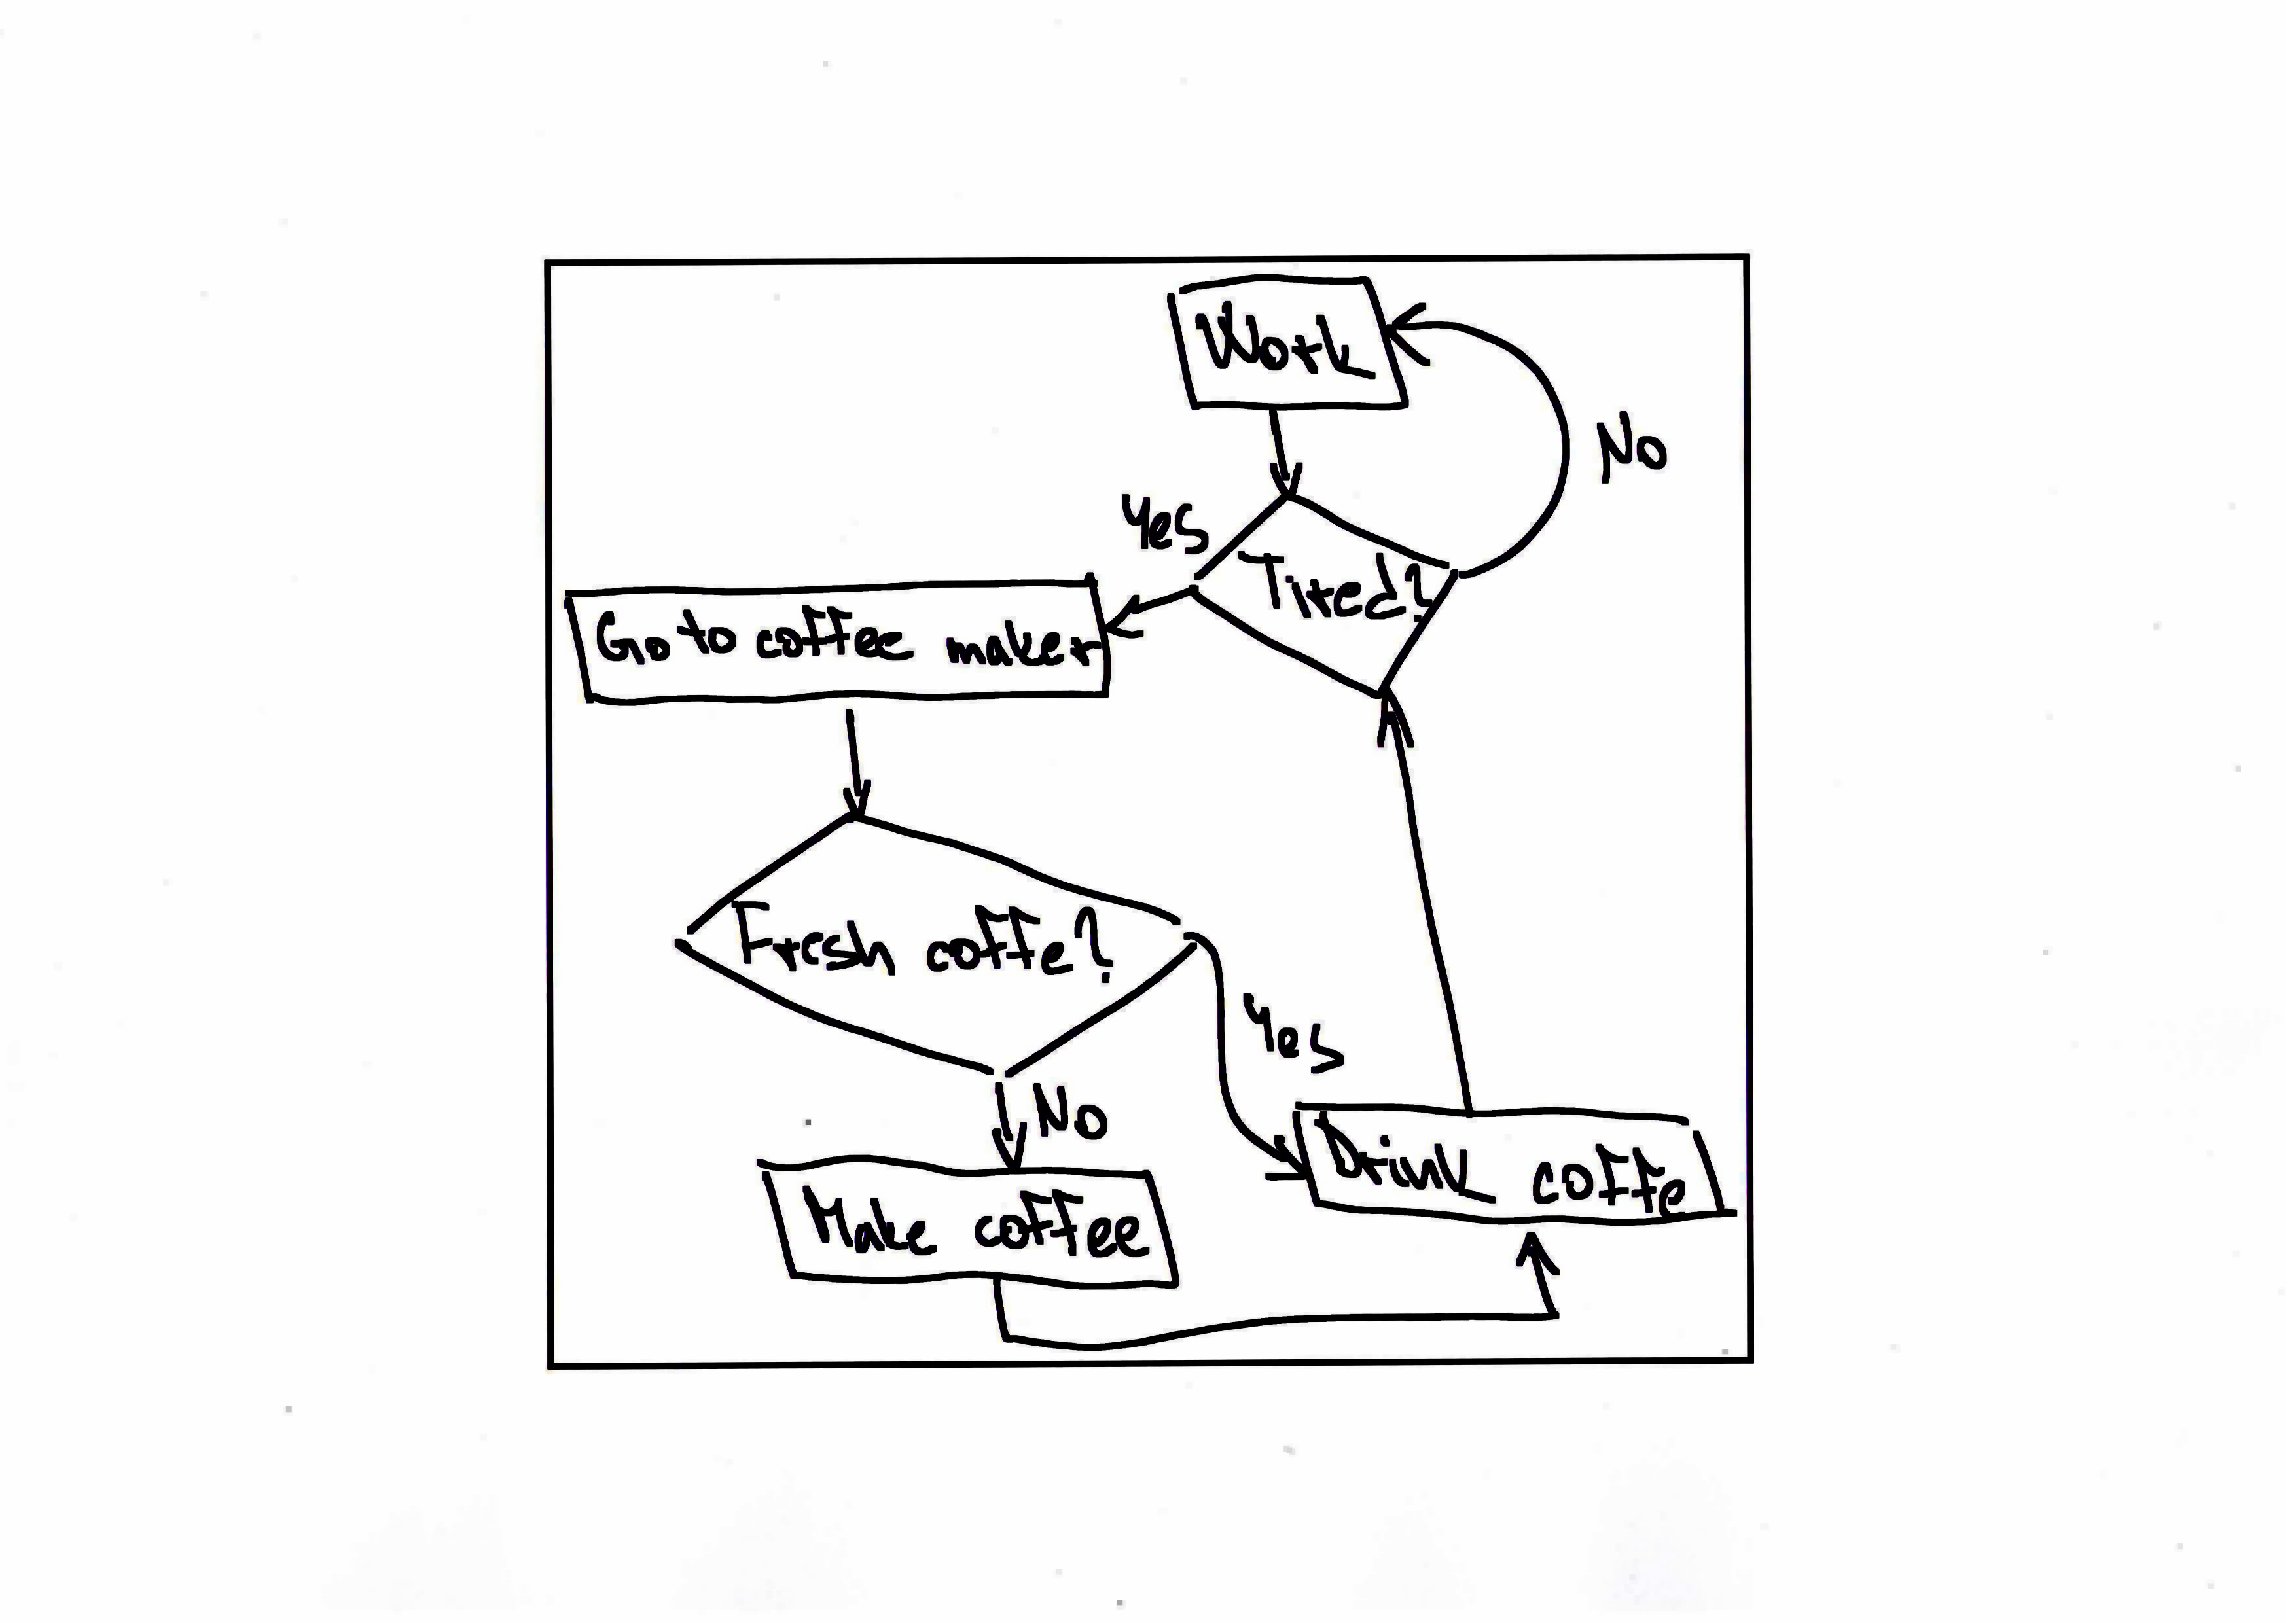 Work
No
Yes
Tired?
Go to coffee maker
Fresh coffe?
Yes
No
Drink coffe
Make coffee